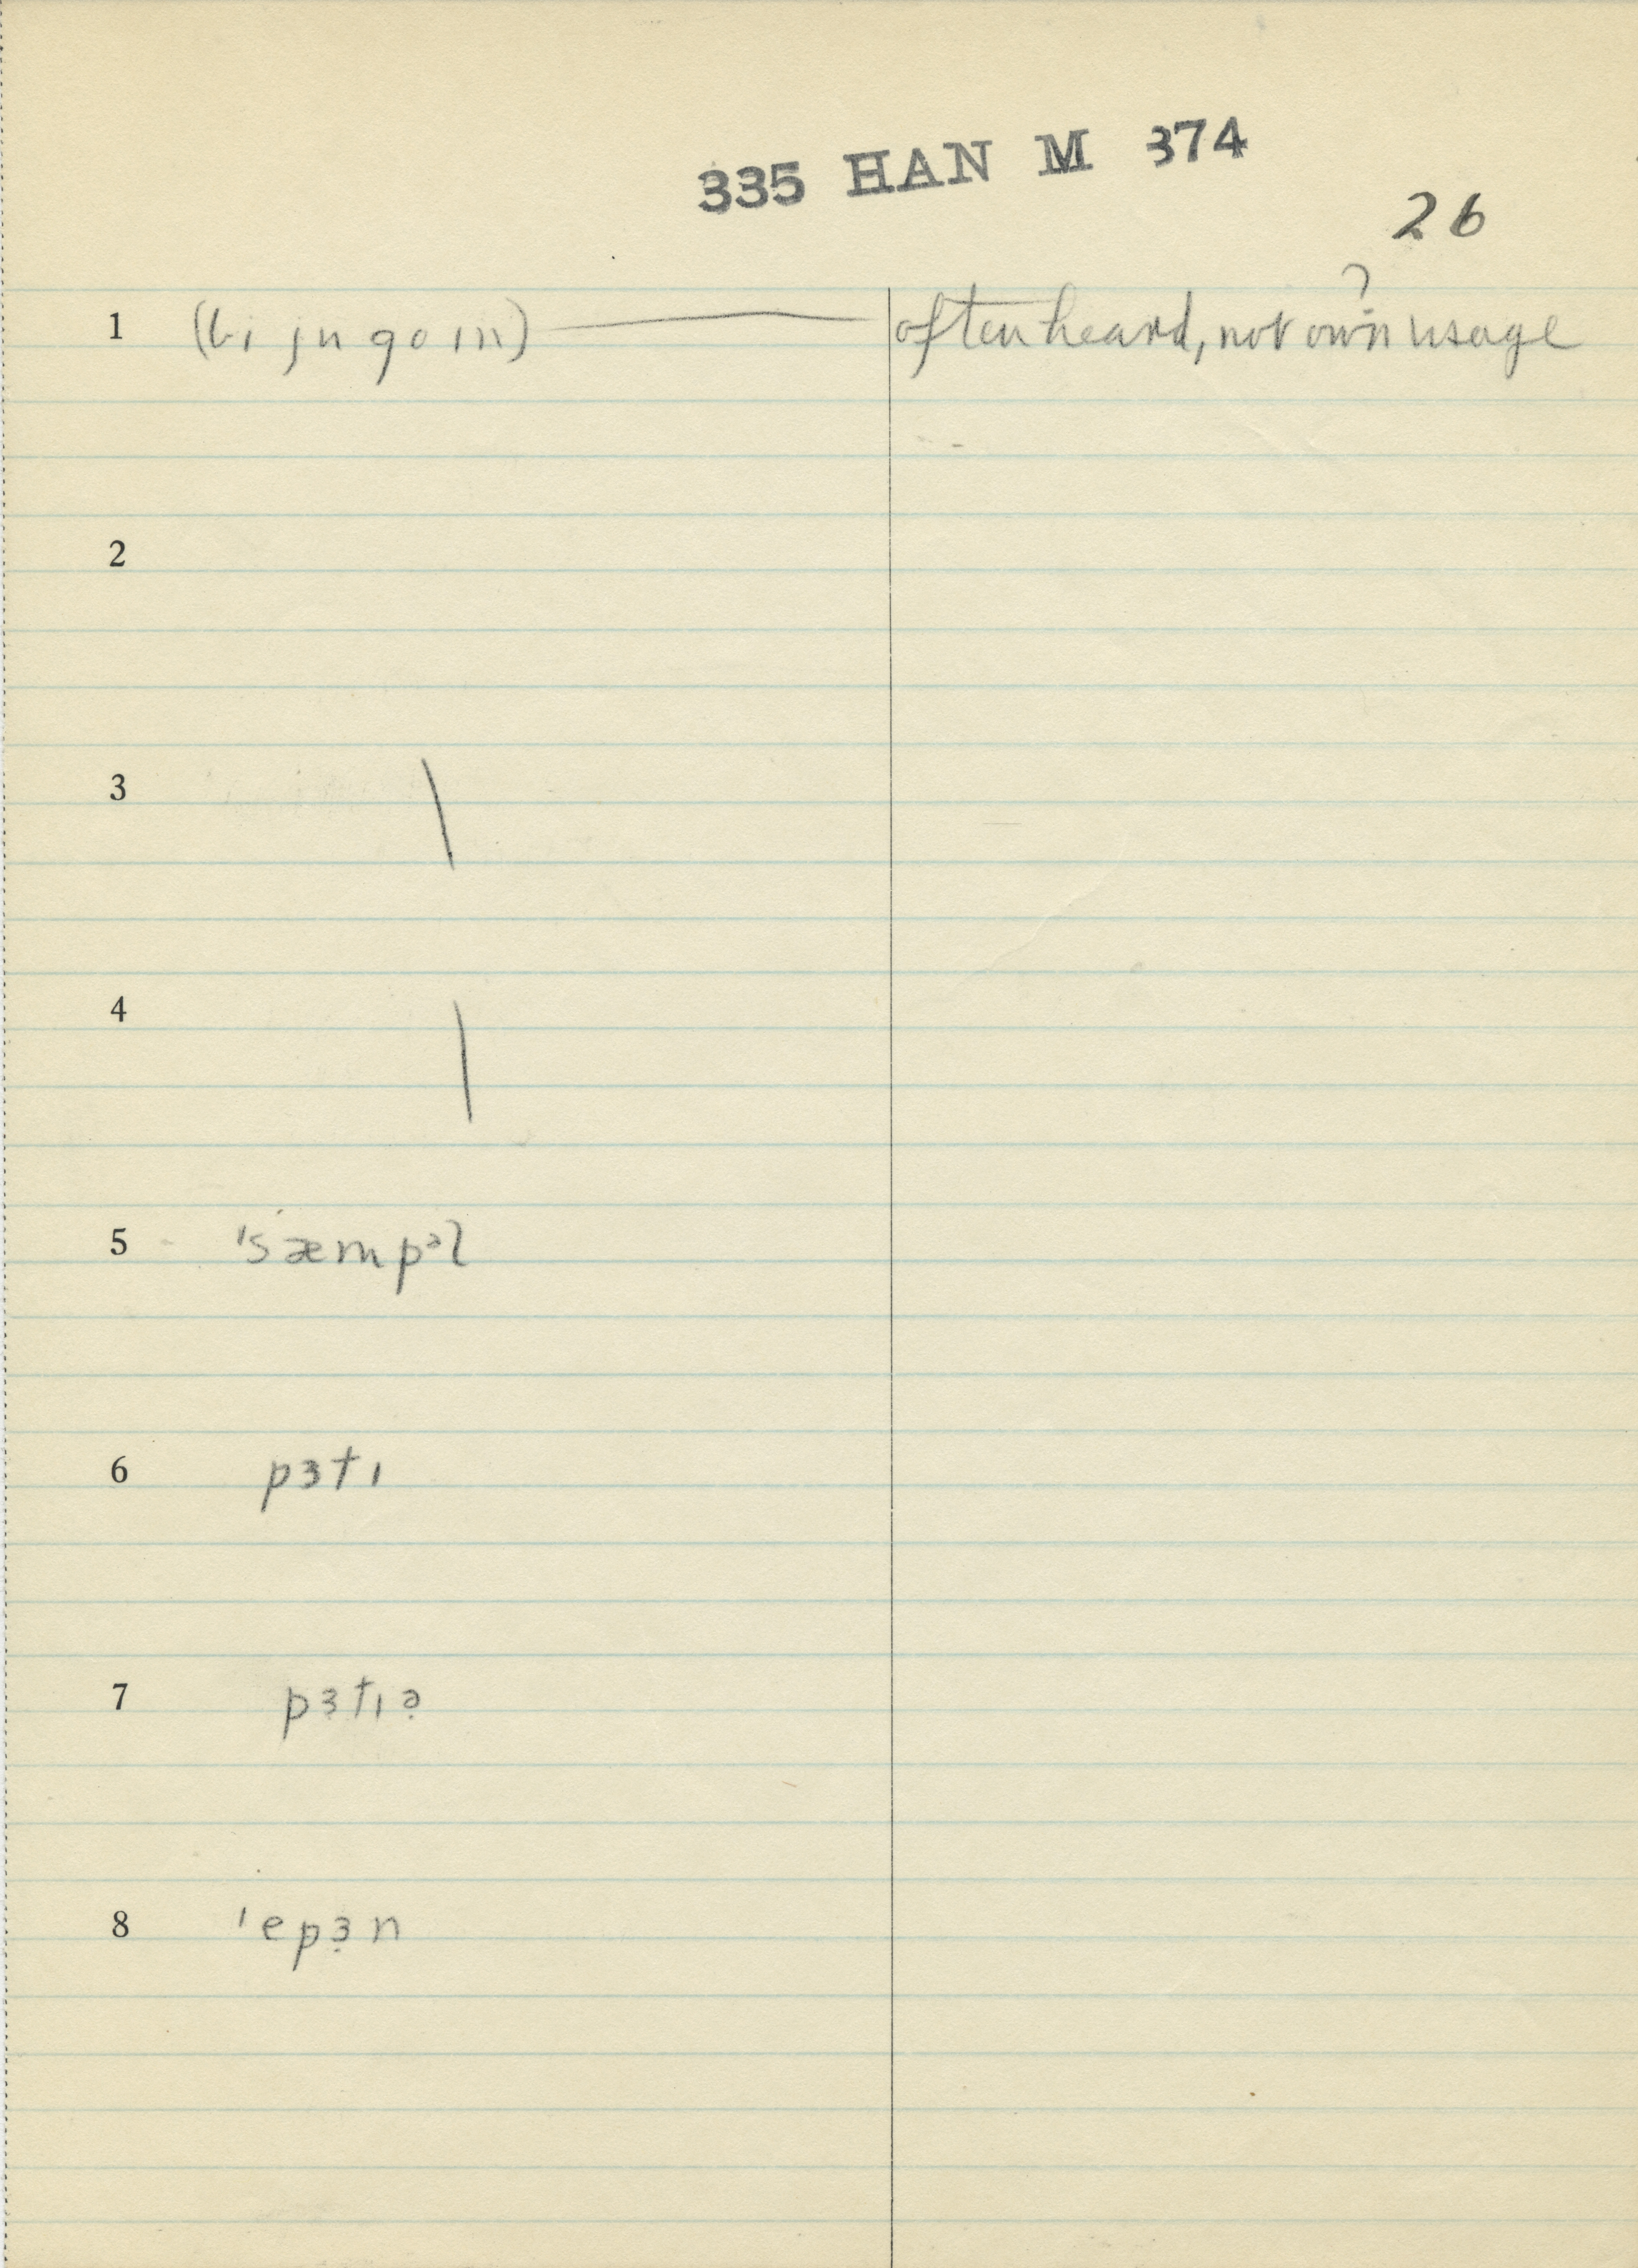 335 HAN M 374
26
?
1 (bi ju go ɪn) often heard, not own usage
2
3 \
4 \
5 ˈsæmpᵊl
6 pɜtɪ
7 pɜ̣tɪə̣
8 ˈepɜ̣n